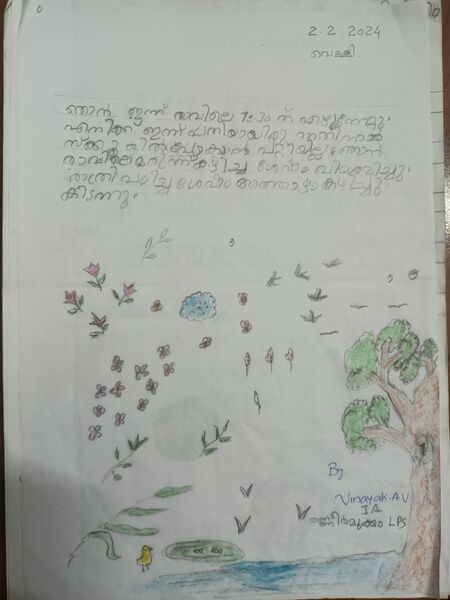 2.2.2024
വെള്ളി.
ഞാൻ ഇന്ന് രാവിലെ 7:30 ന് എഴുന്നേറ്റു.
എനിക്ക് ഇന്ന് പനിയായിരുന്നു അതിനാൽ
സ്കൂളിൽ പോകുവാൻ പറ്റിയില്ല. ഞാൻ
രാവിലെ മരുന്ന് കഴിച്ച ശേഷം വിശ്രമിച്ചു.
രാത്രി പഠിച്ച ശേഷം അത്താഴം കഴിച്ചു
കിടന്നു.
By.
Vinayak.A.V
IA
തണ്ണീർമുക്കം LPS